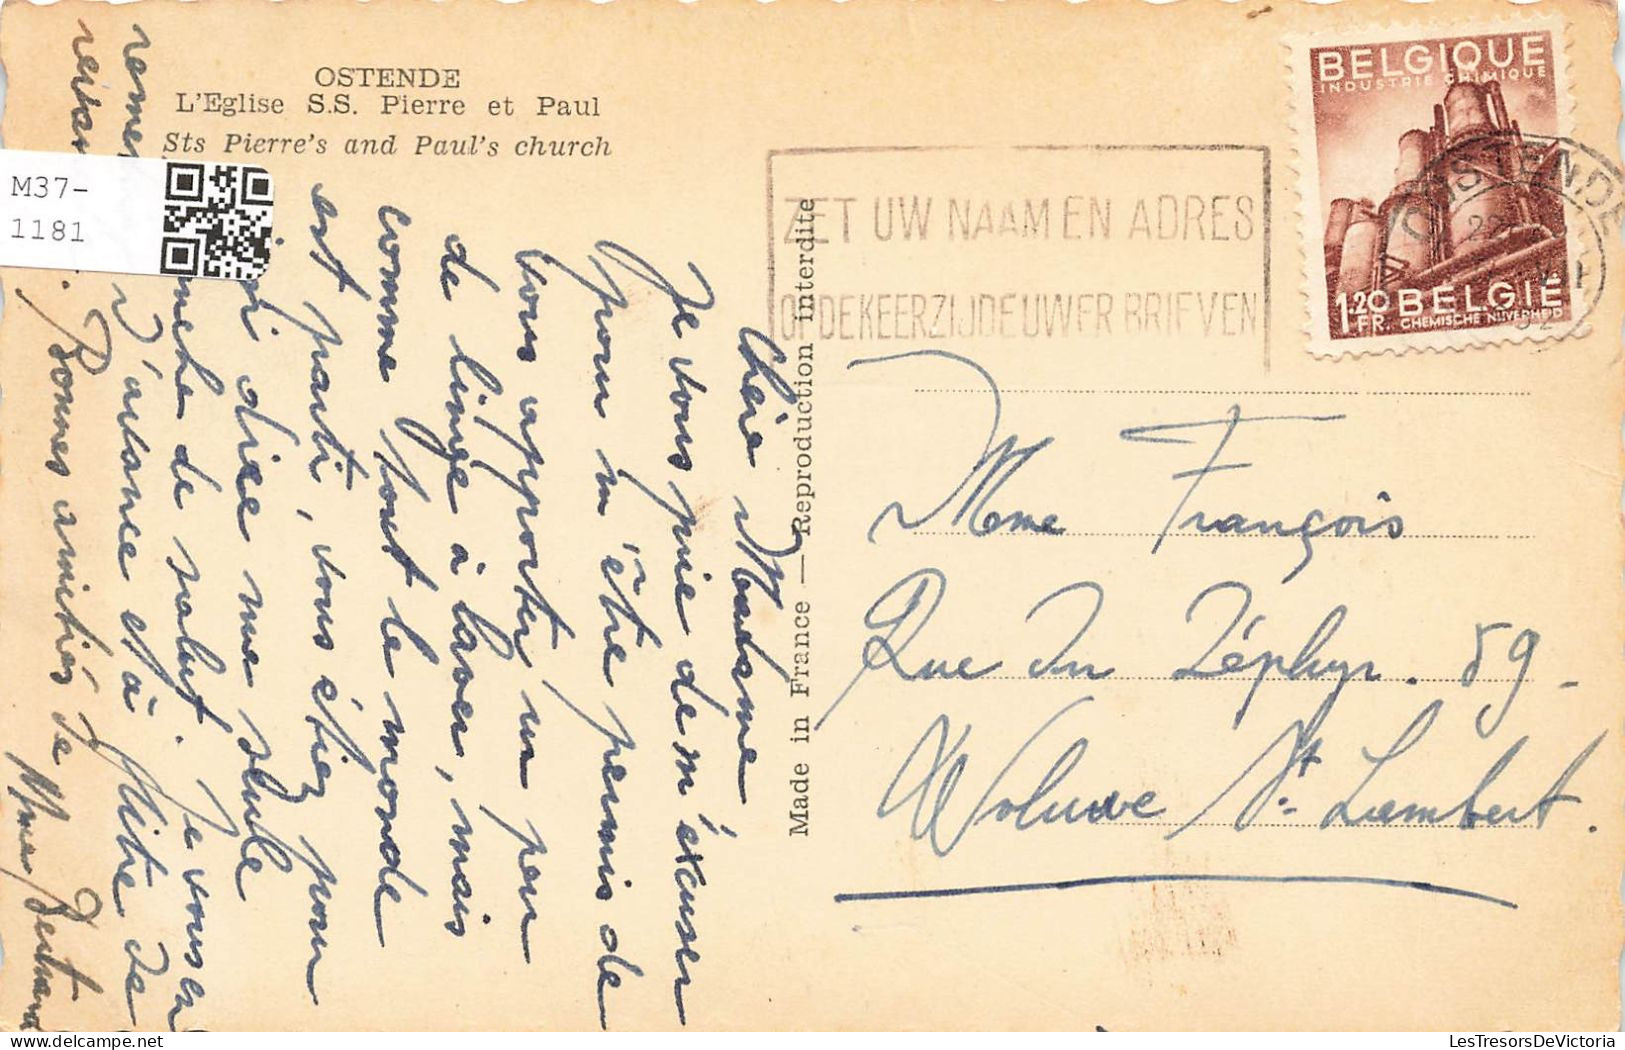 OSTENDE
L'Eglise S.S. Pierre et Paul
Sts Pierre's and Paul's church
M37-
1181
Chère Madame
Je vous prie de m'éxcuser
pour m'être permis de
vous apporter un peu
de linge à laver, mais
comme tout le monde
est parti, vous étiez pour
dire me seule
de salut. Je vous en
d'avance et à
Bonnes amitiés de Mme Bertrand
Made in France — Reproduction interdite
ZET UW NAAM EN ADRES
OP DE KEERZIJDE UWER BRIEVEN
BELGIQUE
INDUSTRIE CHIMIQUE
1.20 FR. BELGIË
CHEMISCHE NIJVERHEID
OOSTENDE
Mme François
Rue du Zéphyr. 89-
Woluwe St. Lambert.
LesTresorsDeVictoria